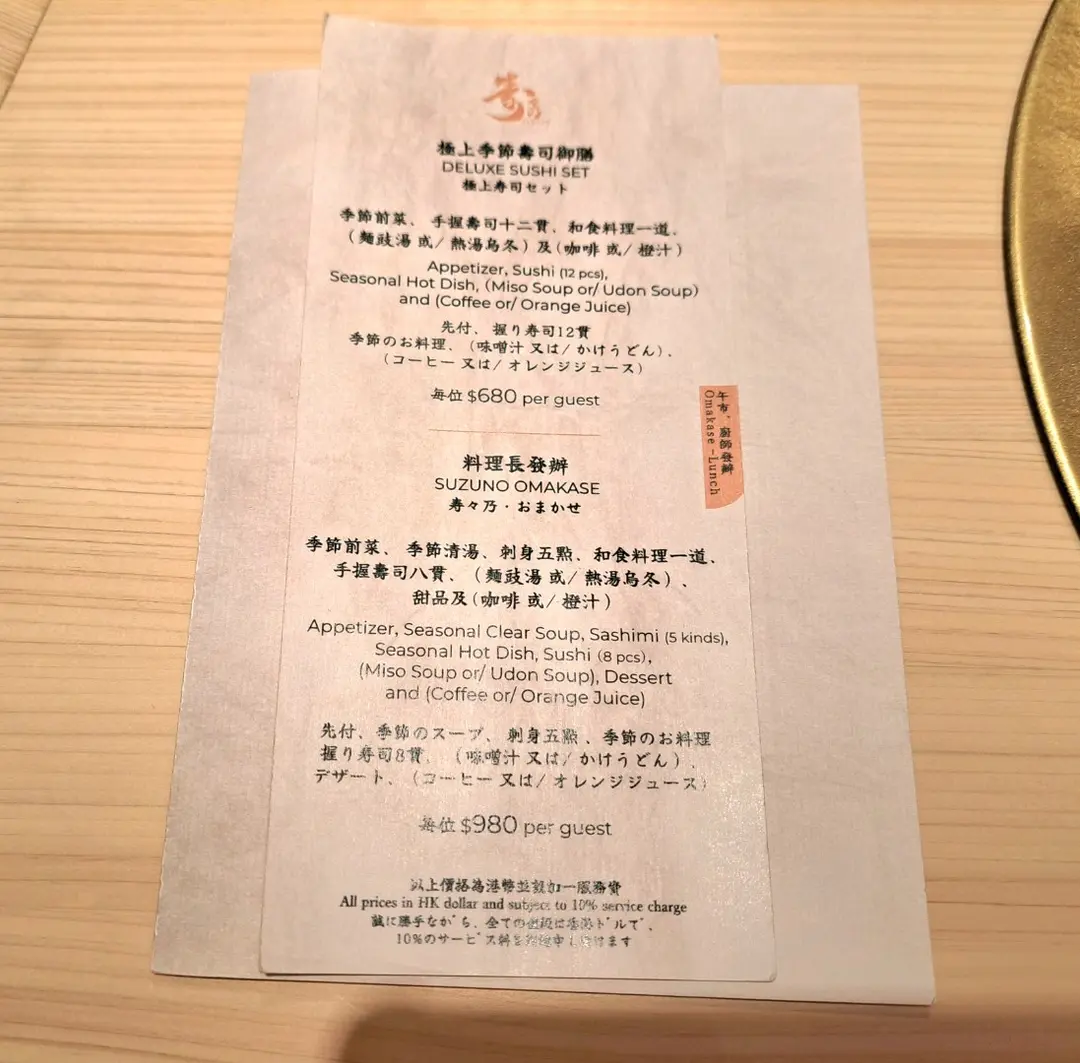 極上季節壽司御膳
DELUXE SUSHI SET
極上寿司セット
季節前菜、手握壽司十二貫、和食料理一道、
(麵豉湯 或/ 熱湯烏冬) 及 (咖啡 或/ 橙汁)
Appetizer, Sushi (12 pcs),
Seasonal Hot Dish, (Miso Soup or/ Udon Soup)
and (Coffee or/ Orange Juice)
先付、握り寿司12貫
季節のお料理、(味噌汁 又は/ かけうどん)、
(コーヒー 又は/ オレンジジュース)
每位 $680 per guest
料理長發辦
SUZUNO OMAKASE
寿々乃・おまかせ
季節前菜、季節清湯、刺身五點、和食料理一道、
手握壽司八貫、(麵豉湯 或/ 熱湯烏冬)、
甜品及 (咖啡 或/ 橙汁)
Appetizer, Seasonal Clear Soup, Sashimi (5 kinds),
Seasonal Hot Dish, Sushi (8 pcs),
(Miso Soup or/ Udon Soup), Dessert
and (Coffee or/ Orange Juice)
先付、季節のスープ、刺身五點、季節のお料理
握り寿司8貫、(味噌汁 又は/ かけうどん)、
デザート、(コーヒー 又は/ オレンジジュース)
每位 $980 per guest
以上價格為港幣並設加一服務費
All prices in HK dollar and subject to 10% service charge
誠に勝手ながら、全ての
10%のサービス料を
Omakase - Lunch